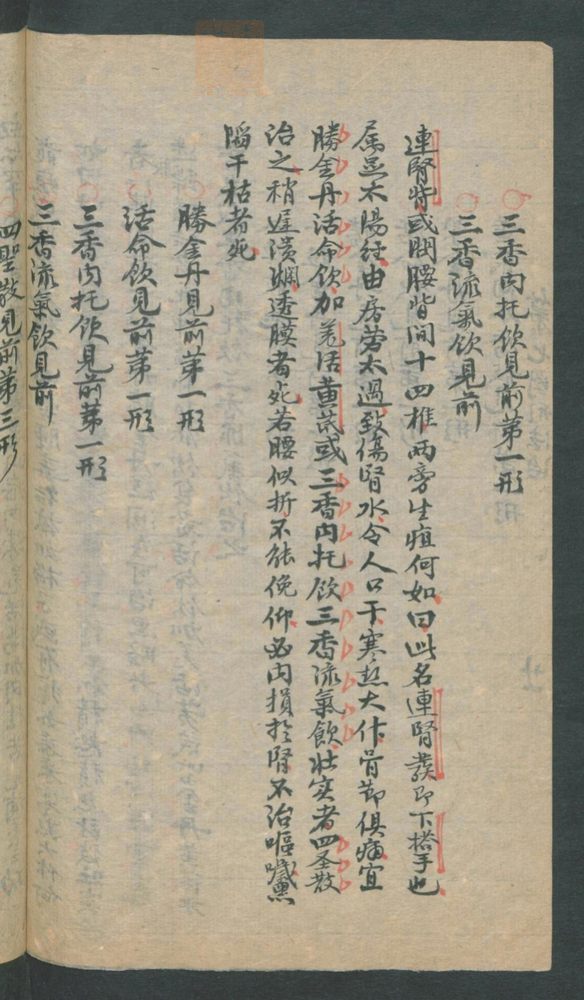 三香内托飲見前第一形
三香流氣飲見前
連腎背或問腰背间十四椎两旁生疽何如曰此名連腎發即下搭手也
属足太陽经由房劳太過致傷腎水令人口干寒热大作骨節俱痛宜
勝金丹活命飲加羌活黄芪或三香内托飲三香流氣飲壮实者四圣散
治之稍遲潰爛透膜者死若腰似折不能俛仰必内損於腎不治嘔噦黑
陷干枯者死
勝金丹見前第一形
活命飲見前第一形
三香内托飲見前第一形
三香流氣飲見前
四聖散見前第三形